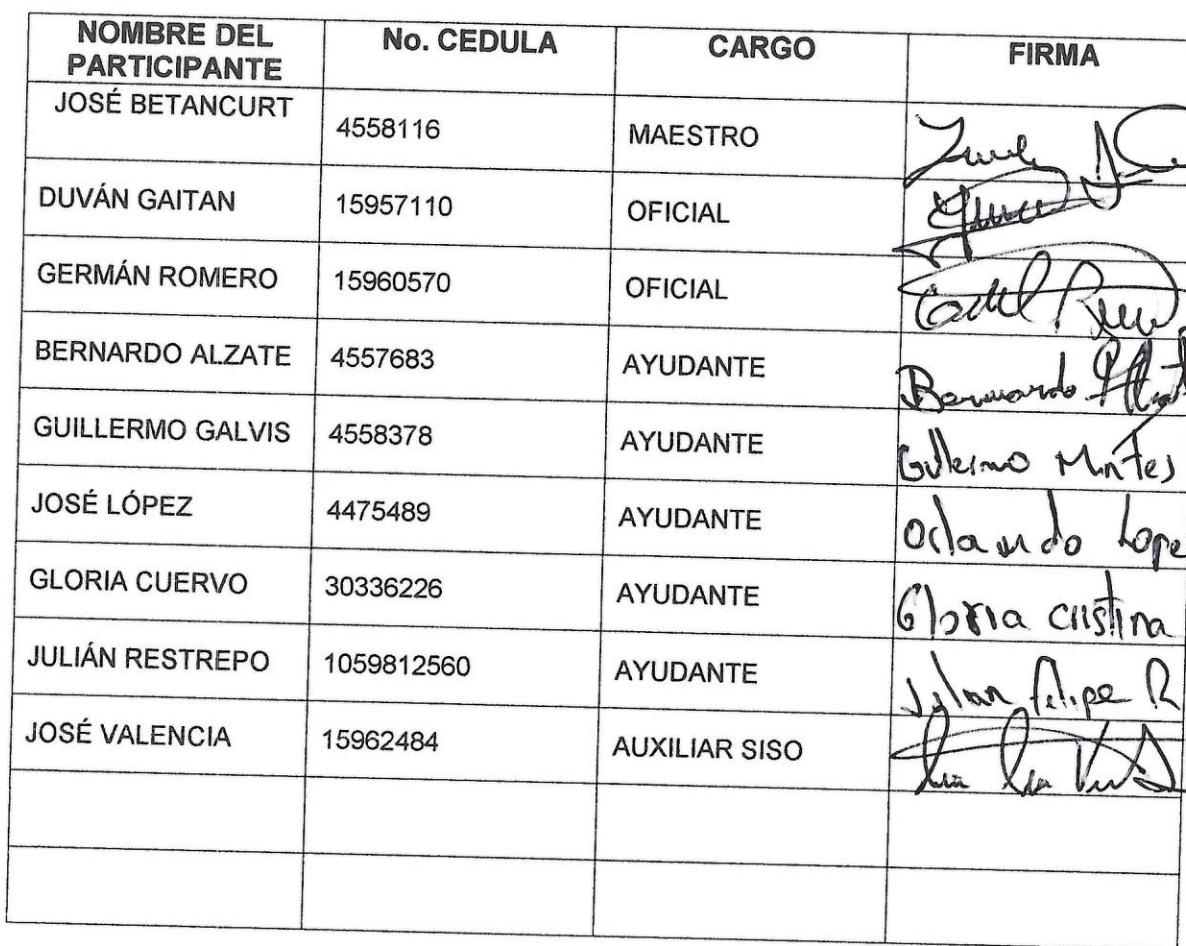 NOMBRE DEL PARTICIPANTE No. CEDULA CARGO FIRMA
JOSÉ BETANCURT 4558116 MAESTRO
DUVÁN GAITAN 15957110 OFICIAL
GERMÁN ROMERO 15960570 OFICIAL
BERNARDO ALZATE 4557683 AYUDANTE Bernardo
GUILLERMO GALVIS 4558378 AYUDANTE Guillermo Montes
JOSÉ LÓPEZ 4475489 AYUDANTE Orlando Lope
GLORIA CUERVO 30336226 AYUDANTE Gloria cristina
JULIÁN RESTREPO 1059812560 AYUDANTE Julian Felipe R
JOSÉ VALENCIA 15962484 AUXILIAR SISO